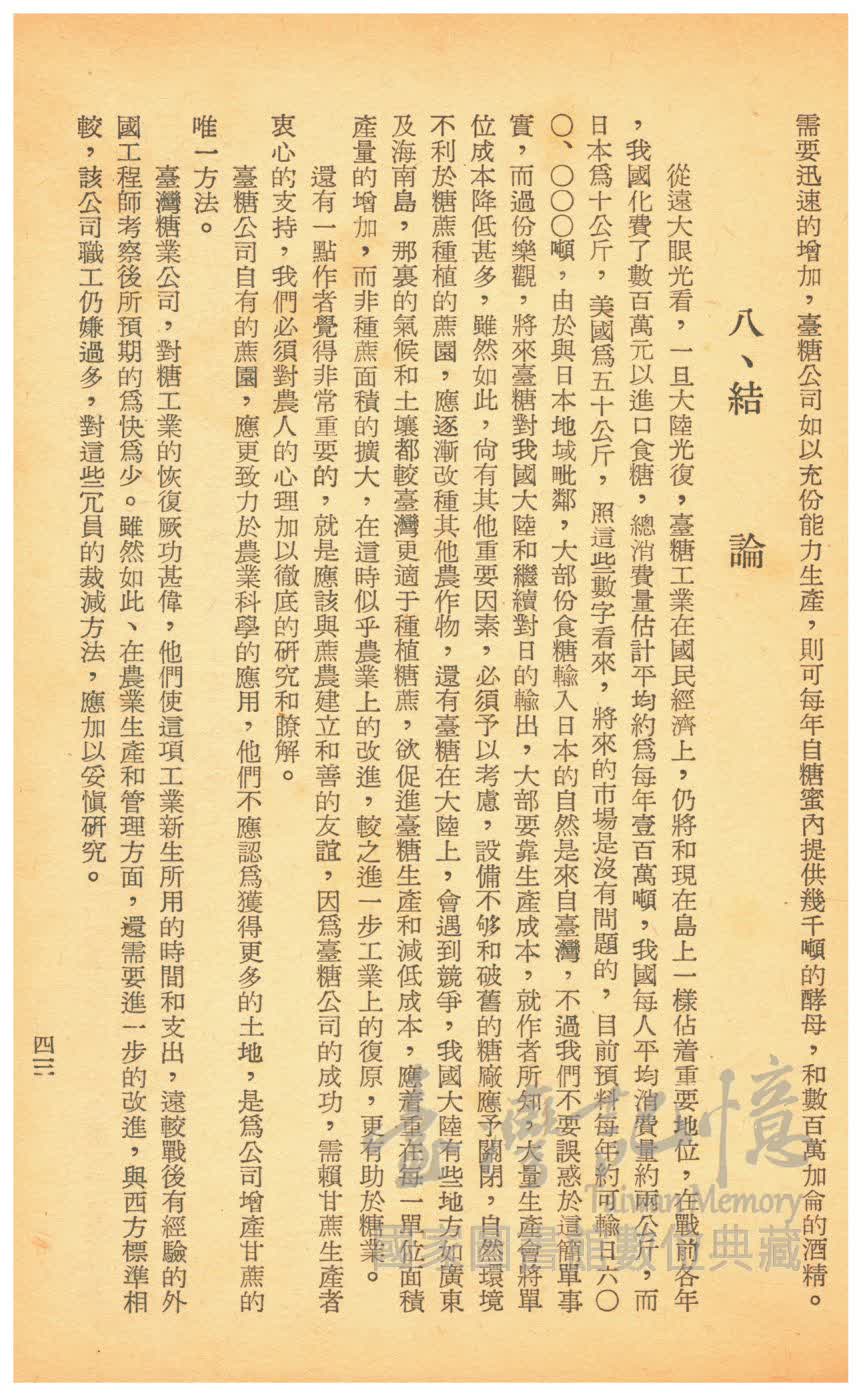 需要迅速的增加，臺糖公司如以充份能力生產，則可每年自糖蜜內提供幾千噸的酵母，和數百萬加侖的酒精。
八、結　論
從遠大眼光看，一旦大陸光復，臺糖工業在國民經濟上，仍將和現在島上一樣佔着重要地位，在戰前各年
，我國化費了數百萬元以進口食糖，總消費量估計平均約爲每年壹百萬噸，我國每人平均消費量約兩公斤，而
日本爲十公斤，美國爲五十公斤，照這些數字看來，將來的市場是沒有問題的，目前預料每年約可輸日六〇
〇、〇〇〇噸，由於與日本地域毗鄰，大部份食糖輸入日本的自然是來自臺灣，不過我們不要誤惑於這簡單事
實，而過份樂觀，將來臺糖對我國大陸和繼續對日的輸出，大部要靠生產成本，就作者所知，大量生產會將單
位成本降低甚多，雖然如此，尙有其他重要因素，必須予以考慮，設備不够和破舊的糖廠應予關閉，自然環境
不利於糖蔗種植的蔗園，應逐漸改種其他農作物，還有臺糖在大陸上，會遇到競爭，我國大陸有些地方如廣東
及海南島，那裏的氣候和土壤都較臺灣更適于種植糖蔗，欲促進臺糖生產和減低成本，應着重在每一單位面積
產量的增加，而非種蔗面積的擴大，在這時似乎農業上的改進，較之進一步工業上的復原，更有助於糖業。
還有一點作者覺得非常重要的，就是應該與蔗農建立和善的友誼，因爲臺糖公司的成功，需賴甘蔗生產者
衷心的支持，我們必須對農人的心理加以徹底的研究和瞭解。
臺糖公司自有的蔗園，應更致力於農業科學的應用，他們不應認爲獲得更多的土地，是爲公司增產甘蔗的
唯一方法。
臺灣糖業公司，對糖工業的恢復厥功甚偉，他們使這項工業新生所用的時間和支出，遠較戰後有經驗的外
國工程師考察後所預期的爲快爲少。雖然如此、在農業生產和管理方面，還需要進一步的改進，與西方標準相
較，該公司職工仍嫌過多，對這些冗員的裁減方法，應加以妥愼研究。
四三
臺灣記憶
Taiwan Memory
國家圖書館數位典藏